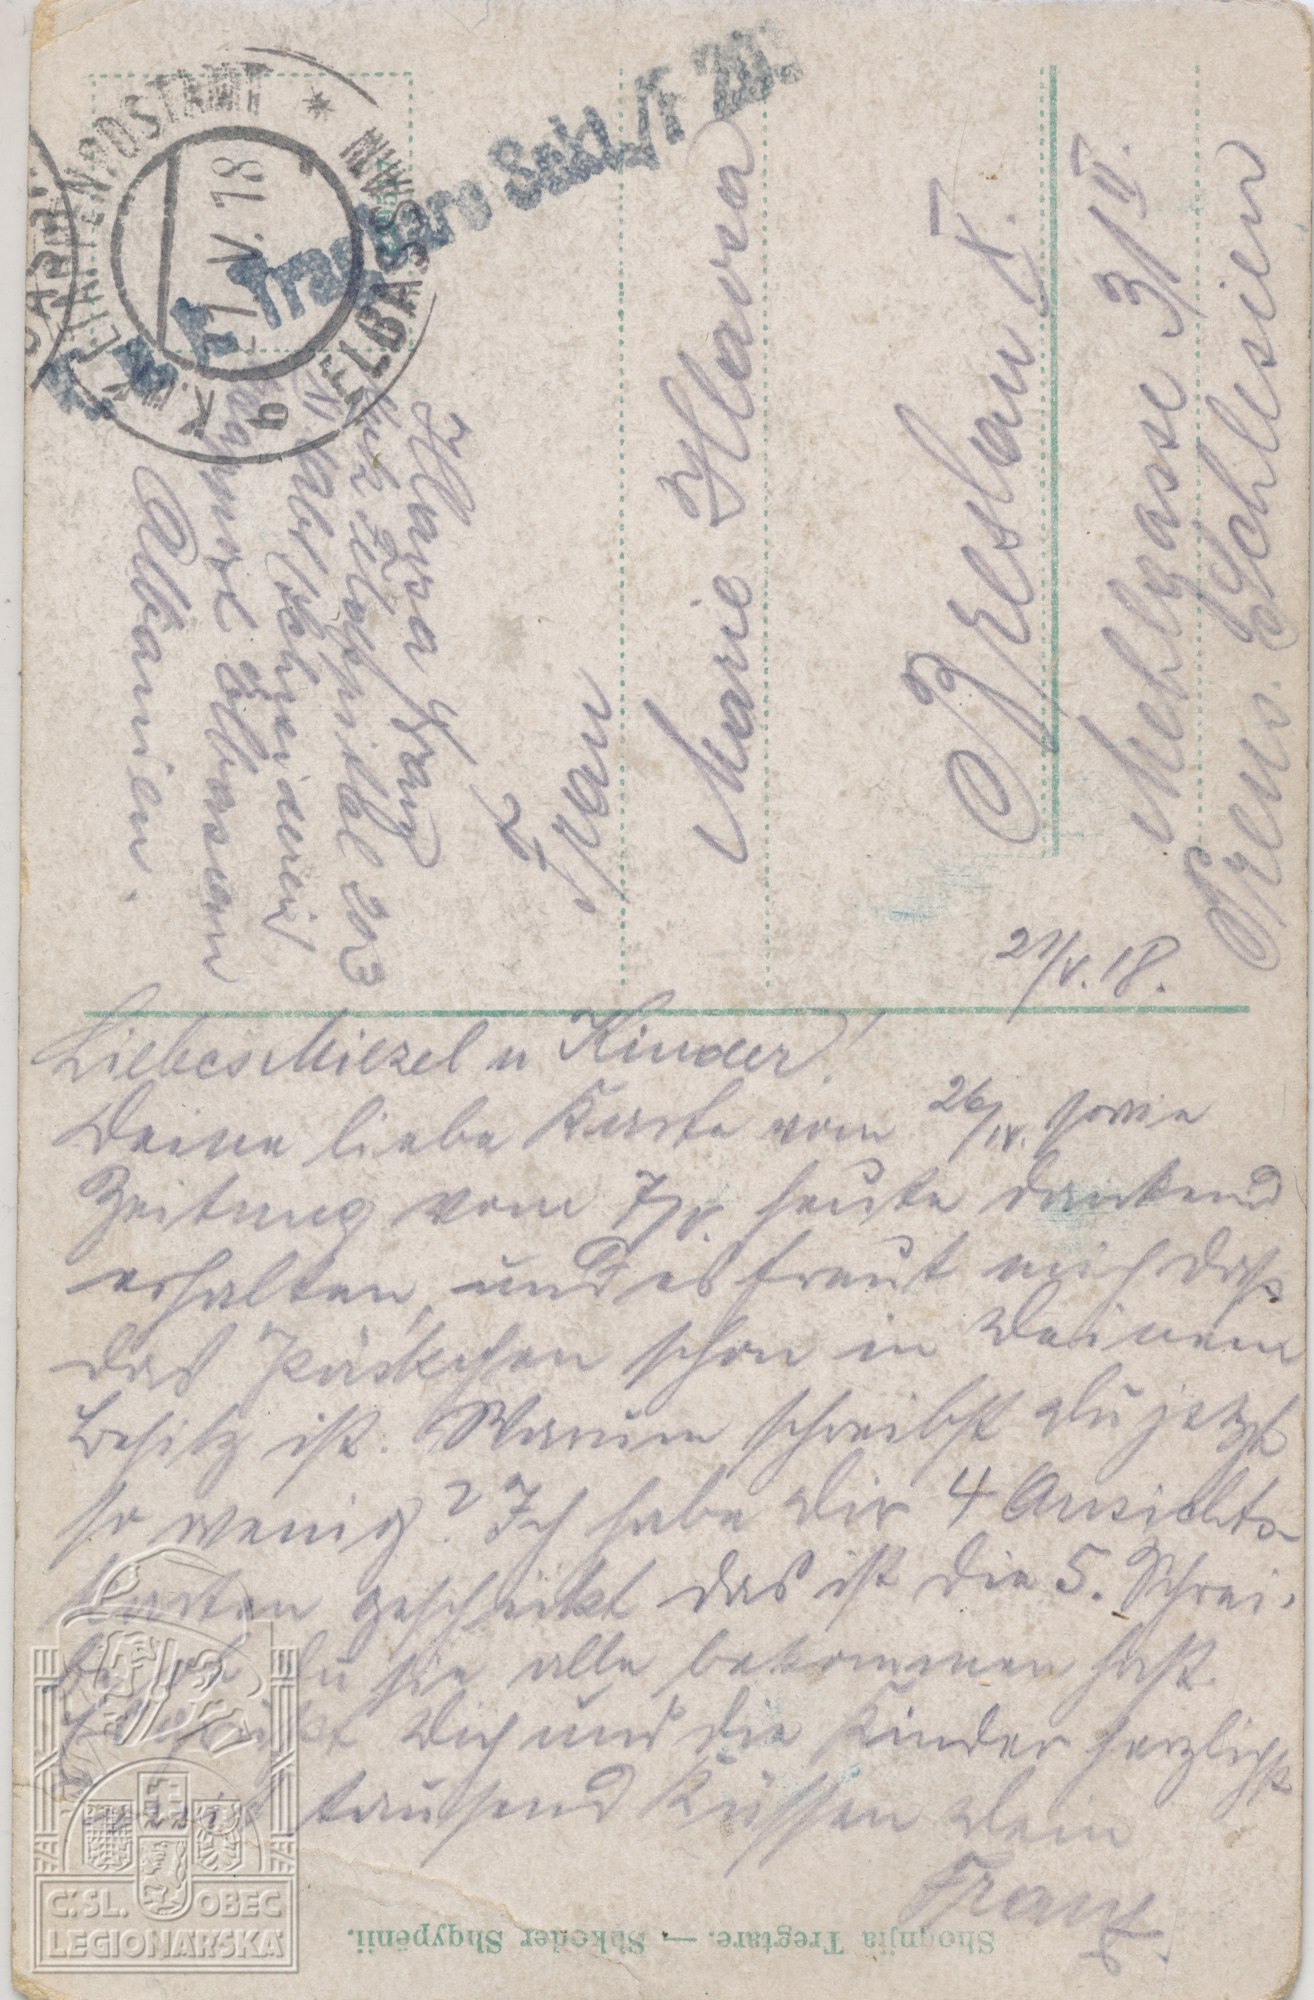 K.u.K. ETAPPENPOSTAMT
21.V.18
ELBASSAN
Hlava Franz
K.u.K. Feldspital 303
Schneiderei
Elbasan
Albanien.
Frau
Marie Hlava
Breslau X.
Mehlgasse 3/II.
Preus. Schlesien
21/V.18.
Liebes Miezel u Kinder!
Deine liebe Karte vom 26/IV. sowie
Zeitung vom 7/V. heute dankend
erhalten, und es freut mich daß
das Päckchen schon in Deinem
Besitz ist. Warum schreibst Du jetzt
so wenig? Ich habe Dir 4 Ansichts-
karten geschickt das ist die 5. Schrei-
be ob Du sie alle bekommen hast.
Es Dich und die Kinder herzlichst
mit tausend Küssen Dein
Franz.
Shoqnjia Tregtare. — Shkoder Shqypënii.
Č.SL. OBEC
LEGIONÁŘSKÁ